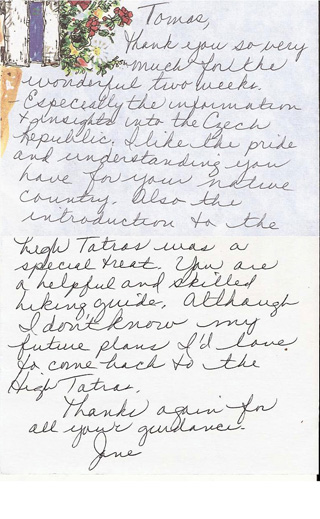 Tomas,
Thank you so very
much for the
wonderful two weeks.
Especially the information
+ insights into the Czech
Republic. I like the pride
and understanding you
have for your native
country. Also the
introduction to the
High Tatras was a
special treat. You are
a helpful and skilled
hiking guide. Although
I don't know my
future plans I'd love
to come back to the
High Tatras.
Thanks again for
all your guidance.
Jane